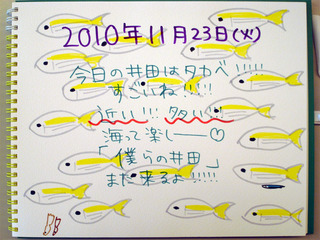 2010年11月23日(火)
今日の井田はタカベ!!!!!
すごいね!!!!
近い!!! 多い!!!
海って楽しー♡
「僕らの井田」
また来るよ!!!!!